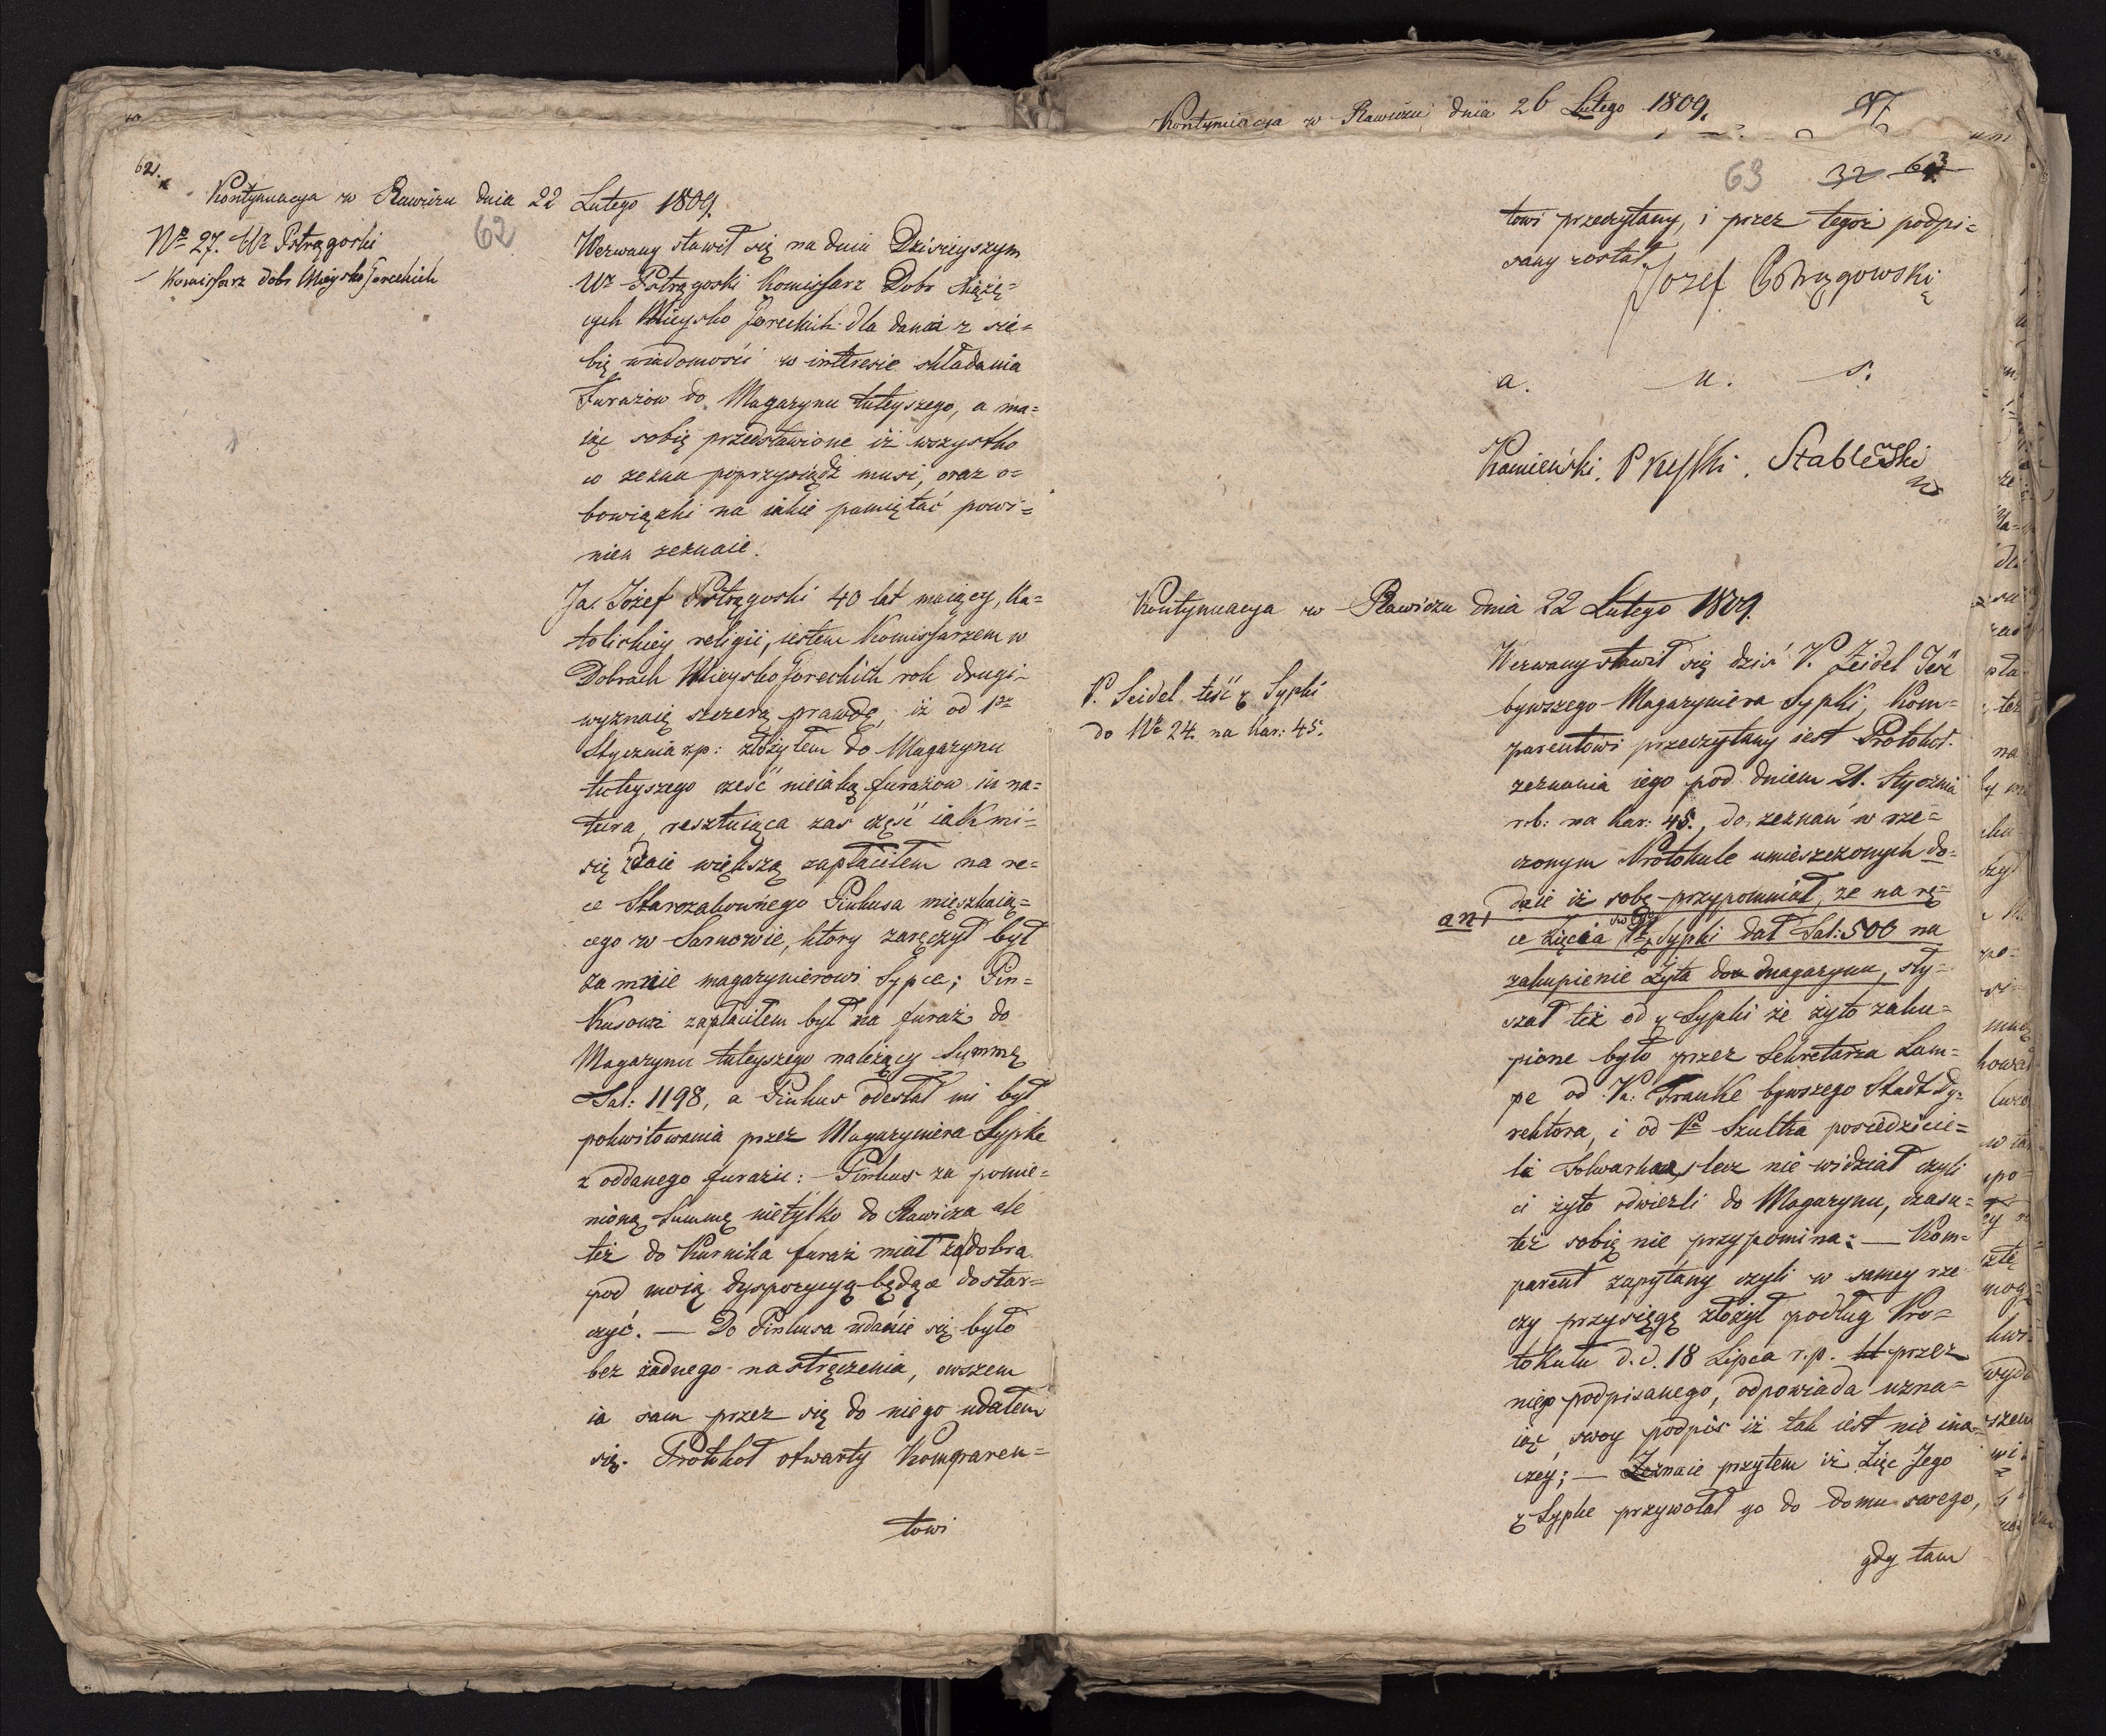 62.
Kontynuacya w Rawiczu dnia 22 Lutego 1809.
62
Nro 27. Ur Potrzągoski
Komissarz dobr Mieysko Goreckich
Wezwany stawił się na dniu Dzisieyszym
Ur Potrzągoski Komissarz Dobr Xiążę=
cych Mieysko Goreckich dla dania z sie=
bię wiadomości w interesie składania
Furażow do Magazynu tuteyszego, a ma=
iąc sobię przedstawione iż wszystko
co zezna poprzysiądz musi, oraz o=
bowiązki na iakie pamiętać powi=
nien zeznaie.
Ja Jozef Potrzągoski 40 lat maiący, ka=
tolickiey religii, iestem Komissarzem w
Dobrach Mieysko Goreckich rok drugi
wyznaię szczerą prawdę, iż od 1go
Stycznia r.p: złożyłem do Magazynu
tuteyszego część nieiaką furażow in na=
tura, resztuiąca zas część iak mi
się zdaie większą zapłaciłem na rę=
ce Starozakonnego Pinkusa mieszkaią=
cego w Sarnowie, ktory zaręczył był
za mnie magazynierowi Sypce; Pin=
kusowi zapłaciłem był za furaż do
Magazynu tuteyszego należący Summę
Tal: 1198, a Pinkus odesłał mi był
pokwitowania przez Magazyniera Sypkę
z oddanego furażu: — Pinkus za pomie=
nioną Summę nietylko do Rawicza ale
też do Kurnika furaż miał za dobra
pod moią dyspozycyą będące dostar=
czyć. — Do Pinkusa udanie się było
bez żadnego nastręczenia, owszem
ia sam przez się do niego udałem
się. Protokoł otwarty Komparen=
towi
Kontynuacya w Rawiczu dnia 26 Lutego 1809.
63 32 63
towi przeczytany, i przez tegoż podpi=
sany został.
Jozef Potrzągowski
a. u. s.
Kamieński. Pruski. Stableski
Kontynuacya w Rawiczu dnia 22 Lutego 1809.
P. Seidel teść P Sypki
do Nro 24. na kar: 45.
Wezwany stawił się dziś P. Zeidel Teść
bywszego Magazyniera Sypki, Kom=
parentowi przeczytany iest Protokoł
zeznania iego pod dniem 21. Stycznia
r.b: na kar: 45., do zeznań w rze=
czonym Protokule umieszczonych do=
daie iż sobę przypomniał, że na rę=
an1
ce zięcia swego P Sypki dał Tal: 500 na
zakupienie żyta do magazynu, sły=
szał też od P Sypki że żyto zaku=
pione było przez Sekretarza Lam=
pe od Pa: Franke bywszego Stadt Dy=
rektora, i od Pa Szultza posiedzicie=
la folwarku, lecz nie widział czyli
ci żyto odwieźli do Magazynu, czasu=
też sobię nie przypomina: — Kom=
parent zapytany czyli w samey rze
czy przysięgę złożył podług Pro=
tokułu d.d. 18 Lipca r.p. przez
niego podpisanego, odpowiada uzna=
iąc swoy podpis iż tak iest nie ina=
czey; — Zeznaie przytem iż Zięć Jego
P Sypke przywołał go do domu swego,
gdy tam